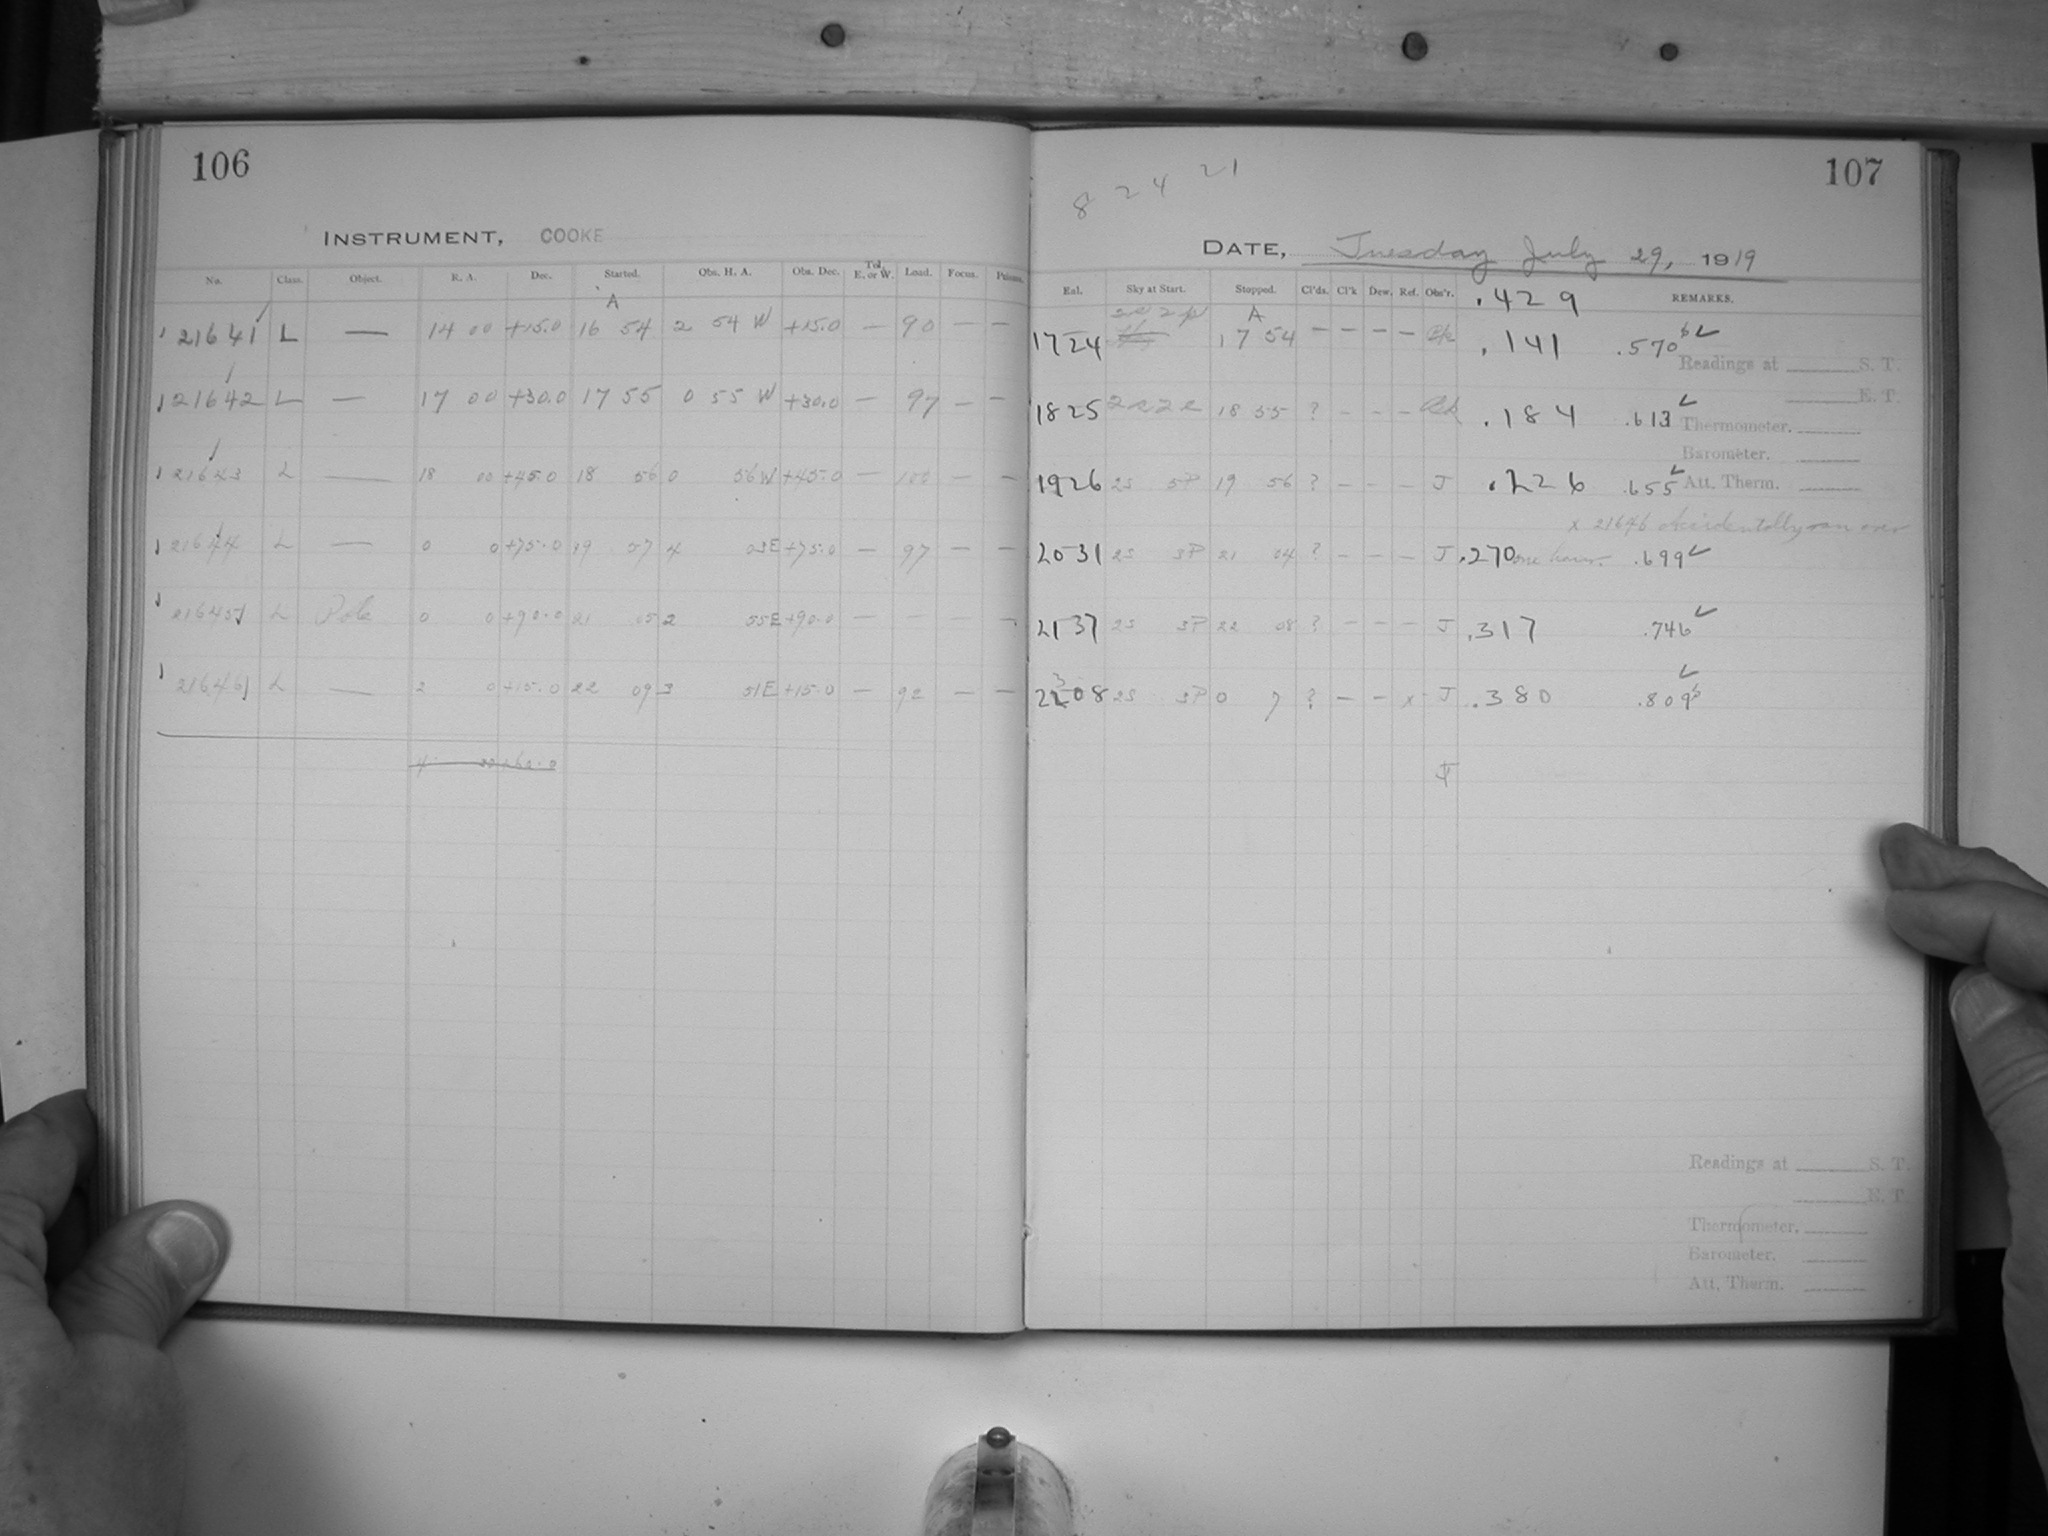 106
INSTRUMENT, COOKE
No. Class. Object. R. A. Dec. Started. Obs. H. A. Obs. Dec. Tel. E. or W. Load. Focus. Prisms.
A
21641 L — 14 00 +15.0 16 54 2 54 W +15.0 — 90 — —
21642 L — 17 00 +30.0 17 55 0 55 W +30.0 — 97 — —
21643 L — 18 00 +45.0 18 56 0 56 W +45.0 — 100 — —
21644 L — 0 0 +75.0 19 57 4 03 E +75.0 — 97 — —
21645 L Pole 0 0 +90.0 21 05 2 55 E +90.0 — — — —
21646 L — 2 0 +15.0 22 09 3 51 E +15.0 — 92 — —
107
8 24 21
DATE, Tuesday July 29, 1919
Exl. Sky at Start. Stopped. Cl'ds. Cl'k Dew. Ref. Obs'r. .429 REMARKS.
A
1724 17 54 — — — — .141 .570
Readings at S. T.
E. T.
1825 18 55 ? — — — .184 .613
Thermometer.
Barometer.
1926 2S 5P 19 56 ? — — — J .226 .655
Att. Therm.
x 21646 accidentally ran over
one hour.
2031 2S 3P 21 04 ? — — — J .270 .699
2137 2S 3P 22 08 ? — — — J .317 .746
2308 2S 3P 0 7 ? — — x J .380 .809
J
Readings at S. T.
E. T.
Thermometer.
Barometer.
Att. Therm.